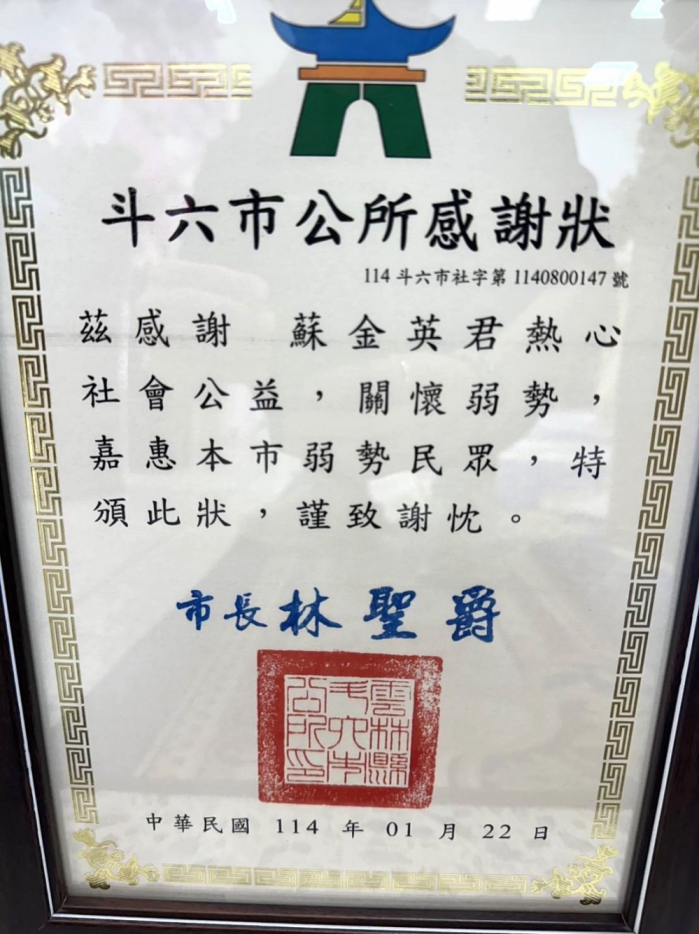 斗六市公所感謝狀
114 斗六市社字第 1140800147 號
茲感謝 蘇金英君熱心
社會公益，關懷弱勢，
嘉惠本市弱勢民眾，特
頒此狀，謹致謝忱。
市長 林聖爵
雲林縣斗六市公所印
中華民國 114 年 01 月 22 日